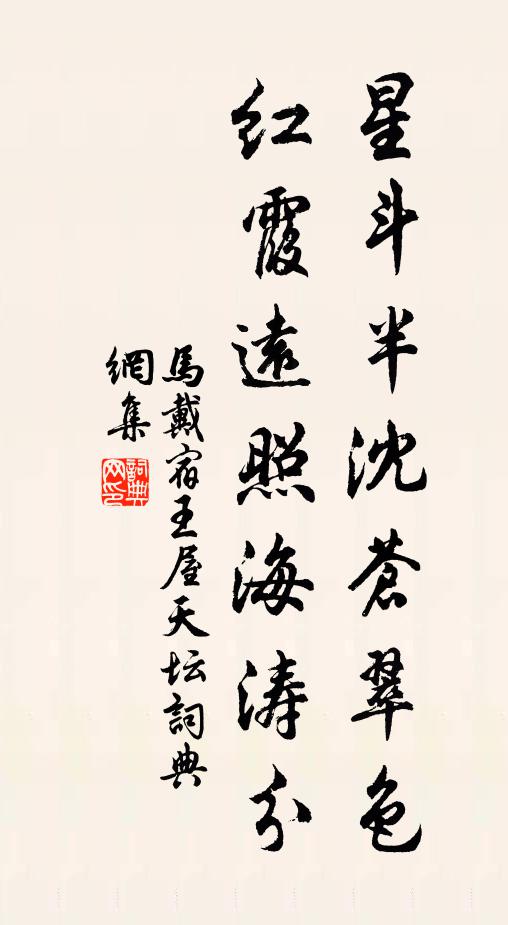 星斗半沈蒼翠色
紅霞遠照海涛分
馬戴宿王屋天坛詞典
網集
詞典网印